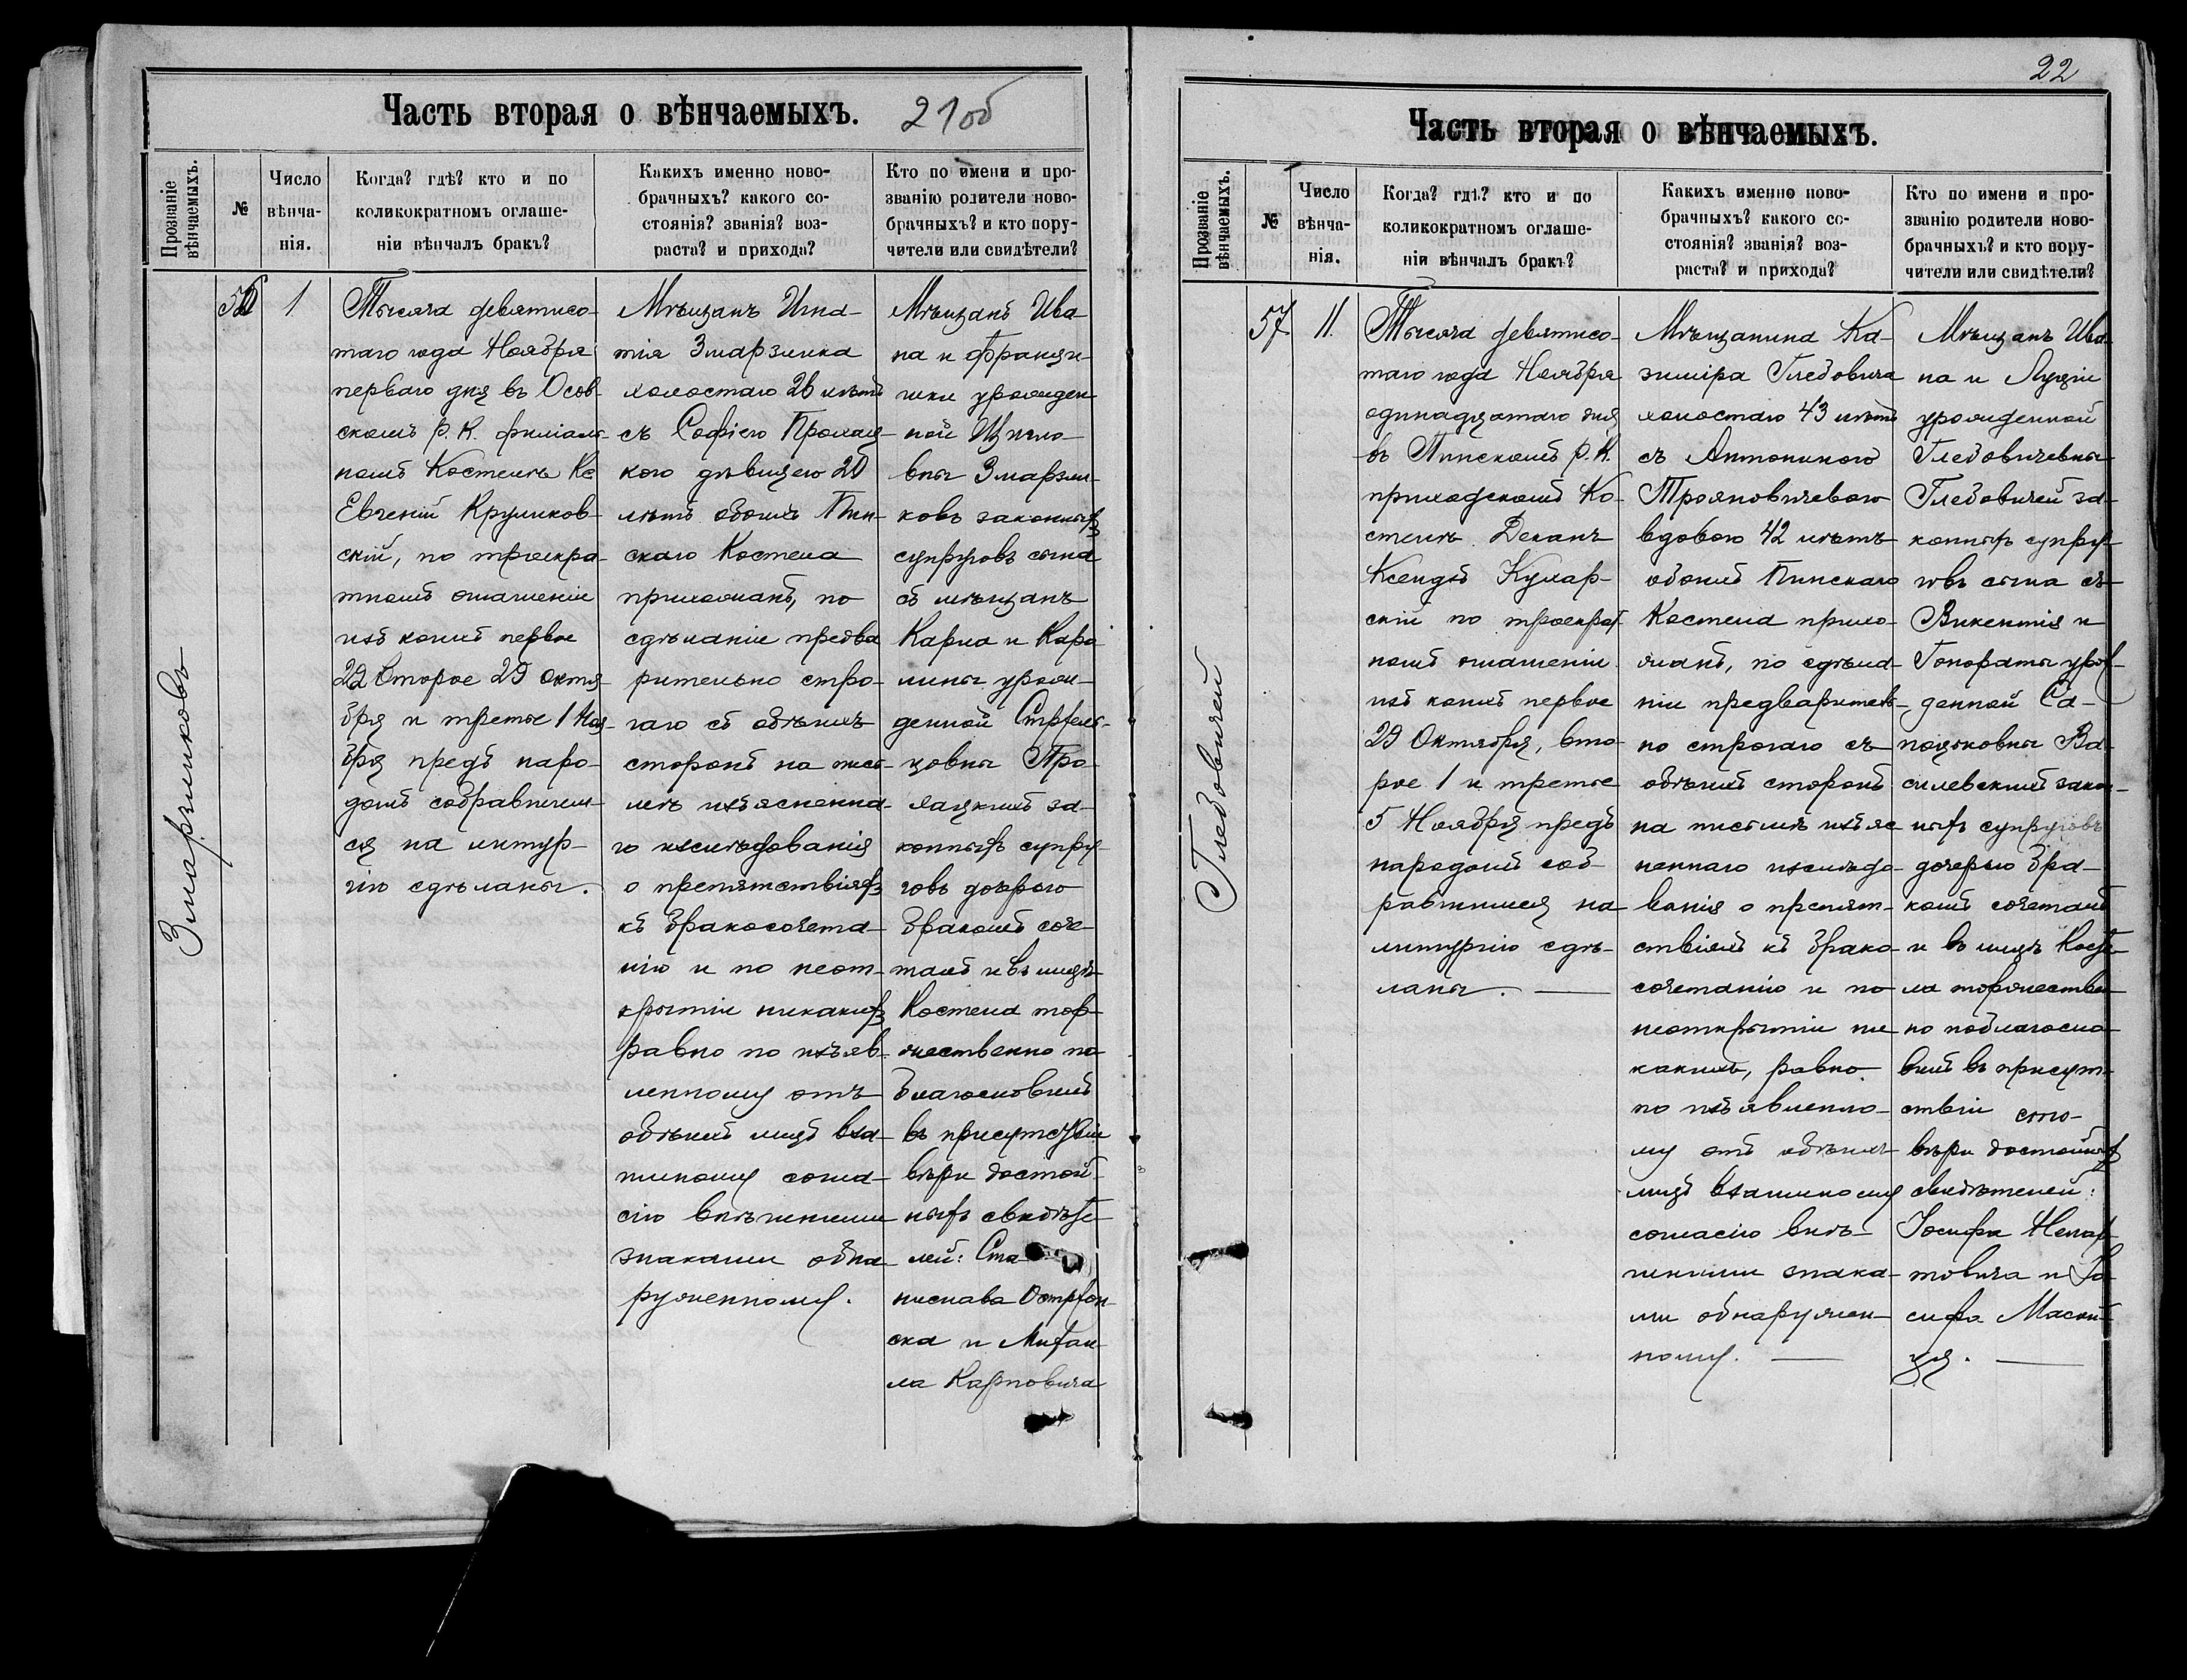 Часть вторая о вѣнчаемыхъ. 21об
Прозваніе вѣнчаемыхъ.
№
Число
вѣнча-
нія.
Когда? гдѣ? кто и по
коликократномъ оглаше-
ніи вѣнчалъ бракъ?
Какихъ именно ново-
брачныхъ? какого со-
стоянія? званія? воз-
раста? и прихода?
Кто по имени и про-
званію родители ново-
брачныхъ? и кто пору-
чители или свидѣтели?
Змарзликовъ
1
Тысяча девятисо-
таго года Ноября
перваго дня въ Осов-
скомъ Р. К. филіаль-
номъ Костелѣ Кс
Евгеній Круликов-
скій, по троекра-
тномъ оглашеніи
изъ коихъ первое
22 второе 29 октя-
бря и третье 1 Ноя-
бря предъ наро-
домъ собравшим-
ся на литур-
гію сдѣланы.
Мѣщанъ Игна-
тія Змарзлика
холостаго 26 лѣтъ
съ Софіею Пролац-
кою дѣвицею 20
лѣтъ обоихъ Пин-
скаго Костела
прихожанъ, по
сдѣланіи предва
рительно стро-
гаго съ обѣихъ
сторонъ на пись-
мѣ изъясненна-
го изслѣдованія
о препятствіяхъ
къ бракосочета-
нію и по неот-
крытіи никакихъ
равно по изъяв-
ленному отъ
обѣихъ лицъ вза-
имному согла-
сію внѣшними
знаками обна-
руженному.
Мѣщанъ Ива
на и Франци-
шки урожден
ной
вны Змарзли-
ковъ законныхъ
супруговъ сына
съ мѣщанъ
Карла и Каро
лины урож-
денной
цовны Про-
лацкихъ за-
конныхъ супру-
говъ дочерью
бракомъ соче-
талъ и въ лицѣ
Костела тор-
жественно по
благословилъ
въ присутствіи
вѣры достой-
ныхъ свидѣте-
лей: Ста-
нислава Острон-
ска и Михаи-
ла Карповича
22
Часть вторая о вѣнчаемыхъ.
Прозваніе вѣнчаемыхъ.
№
Число
вѣнча-
нія.
Когда? гдѣ? кто и по
коликократномъ оглаше-
ніи вѣнчалъ бракъ?
Какихъ именно ново-
брачныхъ? какого со-
стоянія? званія? воз-
раста? и прихода?
Кто по имени и про-
званію родители ново-
брачныхъ? и кто пору-
чители или свидѣтели?
Глебовичей
57
11.
Тысяча девятисо-
таго года Ноября
одинадцатаго дня
въ Пинскомъ Р. К.
приходскомъ Ко-
стелѣ Деканъ
Ксендзъ Кухар-
скій по троекрат-
номъ оглашеніи
изъ коихъ первое
29 Октября, вто-
рое 1 и третье
5 Ноября предъ
народомъ соб-
равшимся на
литургію сдѣ-
ланы.
Мѣщанина Ка-
зиміра Глебовича
холостаго 43 лѣтъ
съ Антониною
Трояновичевою
вдовою 42 лѣтъ
обоихъ Пинскаго
Костела прихо-
жанъ, по сдѣла-
ніи предваритель-
но строгаго съ
обѣихъ сторонъ
на письмѣ изъяс
неннаго изслѣдо-
ванія о препят-
ствіяхъ къ брако-
сочетанію и по
неоткрытіи ни
какихъ, равно
по изъявленно-
му отъ обѣихъ
лицъ взаимному
согласію внѣ-
шними знака-
ми обнаружен-
ному.
Мѣщанъ Ива
на и Луціи
урожденной
Глебовичевны
Глебовичей за-
конныхъ супру-
говъ сына съ
Викентія и
Гонораты урож-
денной Са-
поцьковны Ва-
силевскихъ закон-
ныхъ супруговъ
дочерью бра-
комъ сочеталъ
и въ лицѣ Косте-
ла торжествен-
но поблагосло-
вилъ въ присут-
ствіи сто-
вѣры достойныхъ
свидѣтелей:
Іосифа Ненар-
товича и Іо-
сифа
ця.